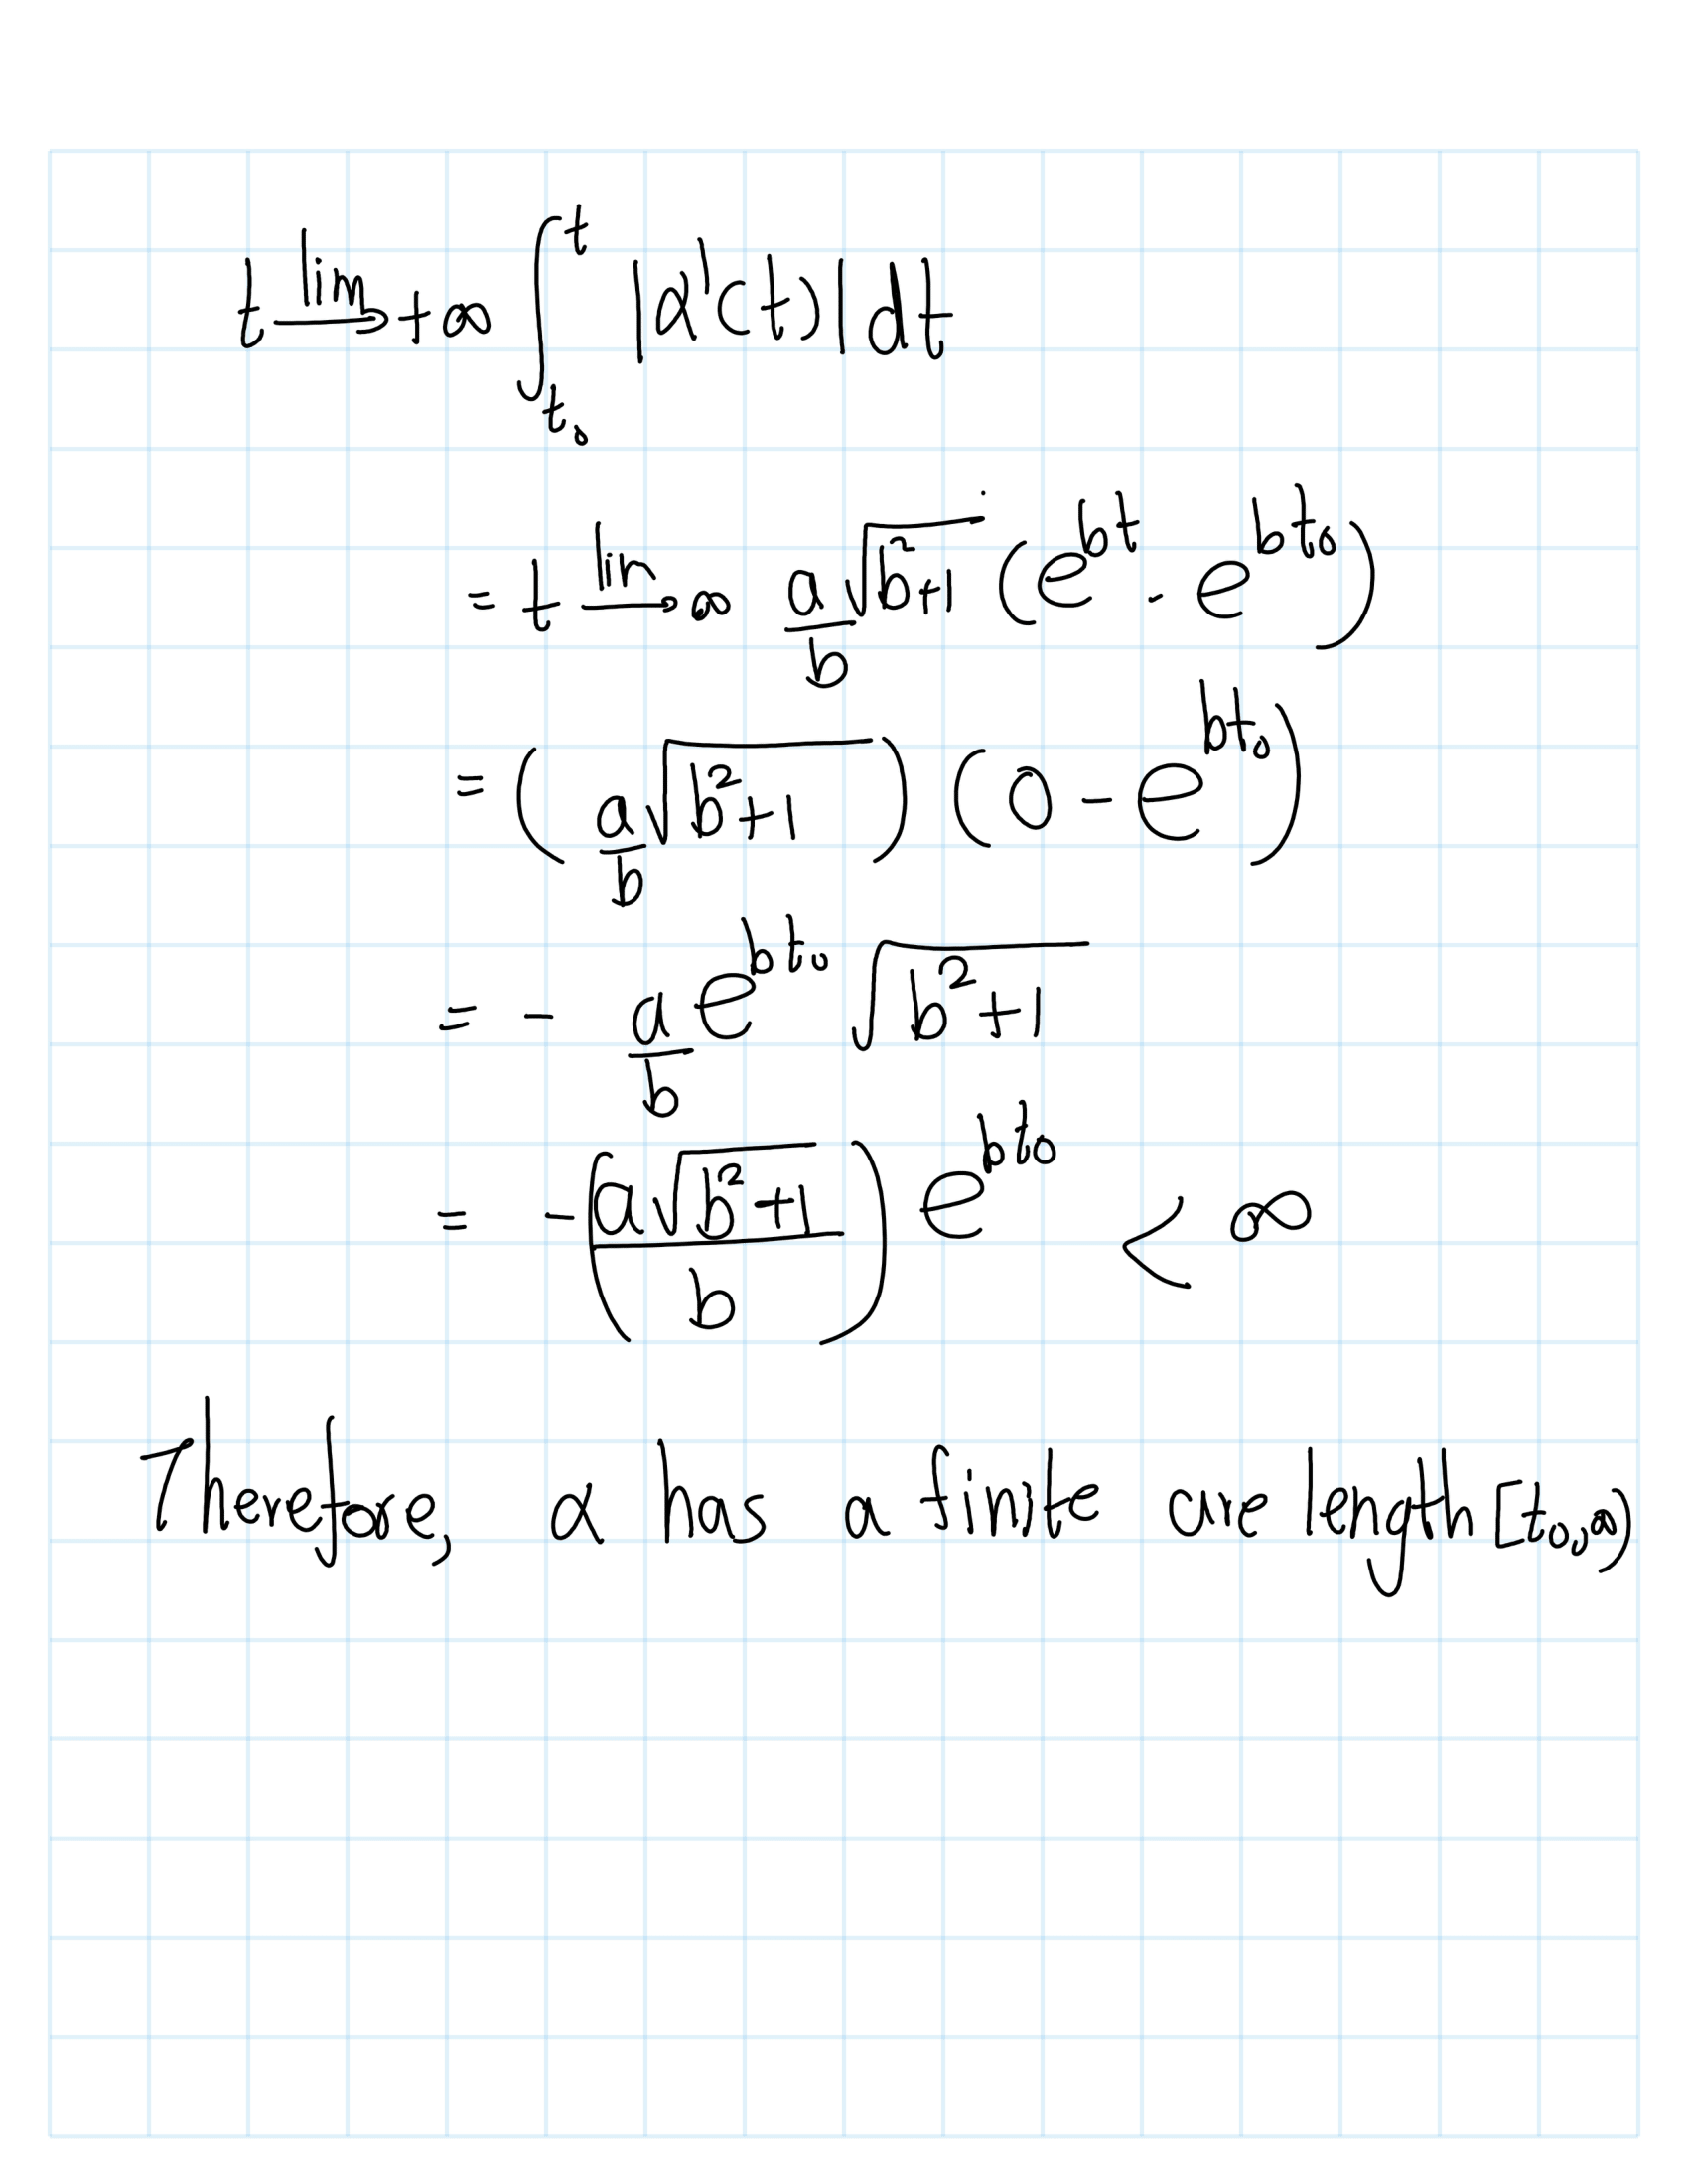 lim t→+∞ ∫_{t₀}^{t} |α'(t)| dt
= lim t→∞ a/b √(b²+1) (e^{bt} - e^{bt₀})
= (a/b √(b²+1)) (0 - e^{bt₀})
= - a/b e^{bt₀} √(b²+1)
= -(a√(b²+1)/b) e^{bt₀} < ∞
Therefore, α has a finite arc length [t₀,∞)